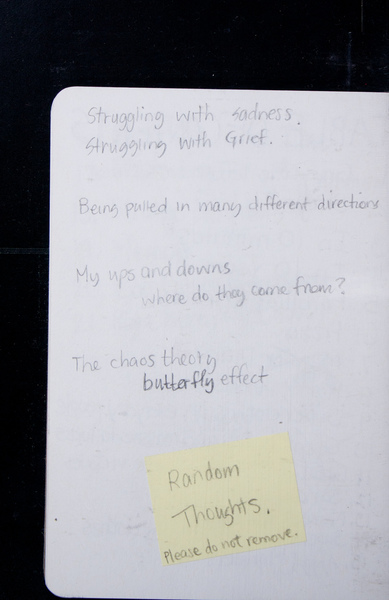 Struggling with sadness.
Struggling with Grief.
Being pulled in many different directions
My ups and downs
where do they come from?
The chaos theory
butterfly effect
Random
Thoughts.
Please do not remove.